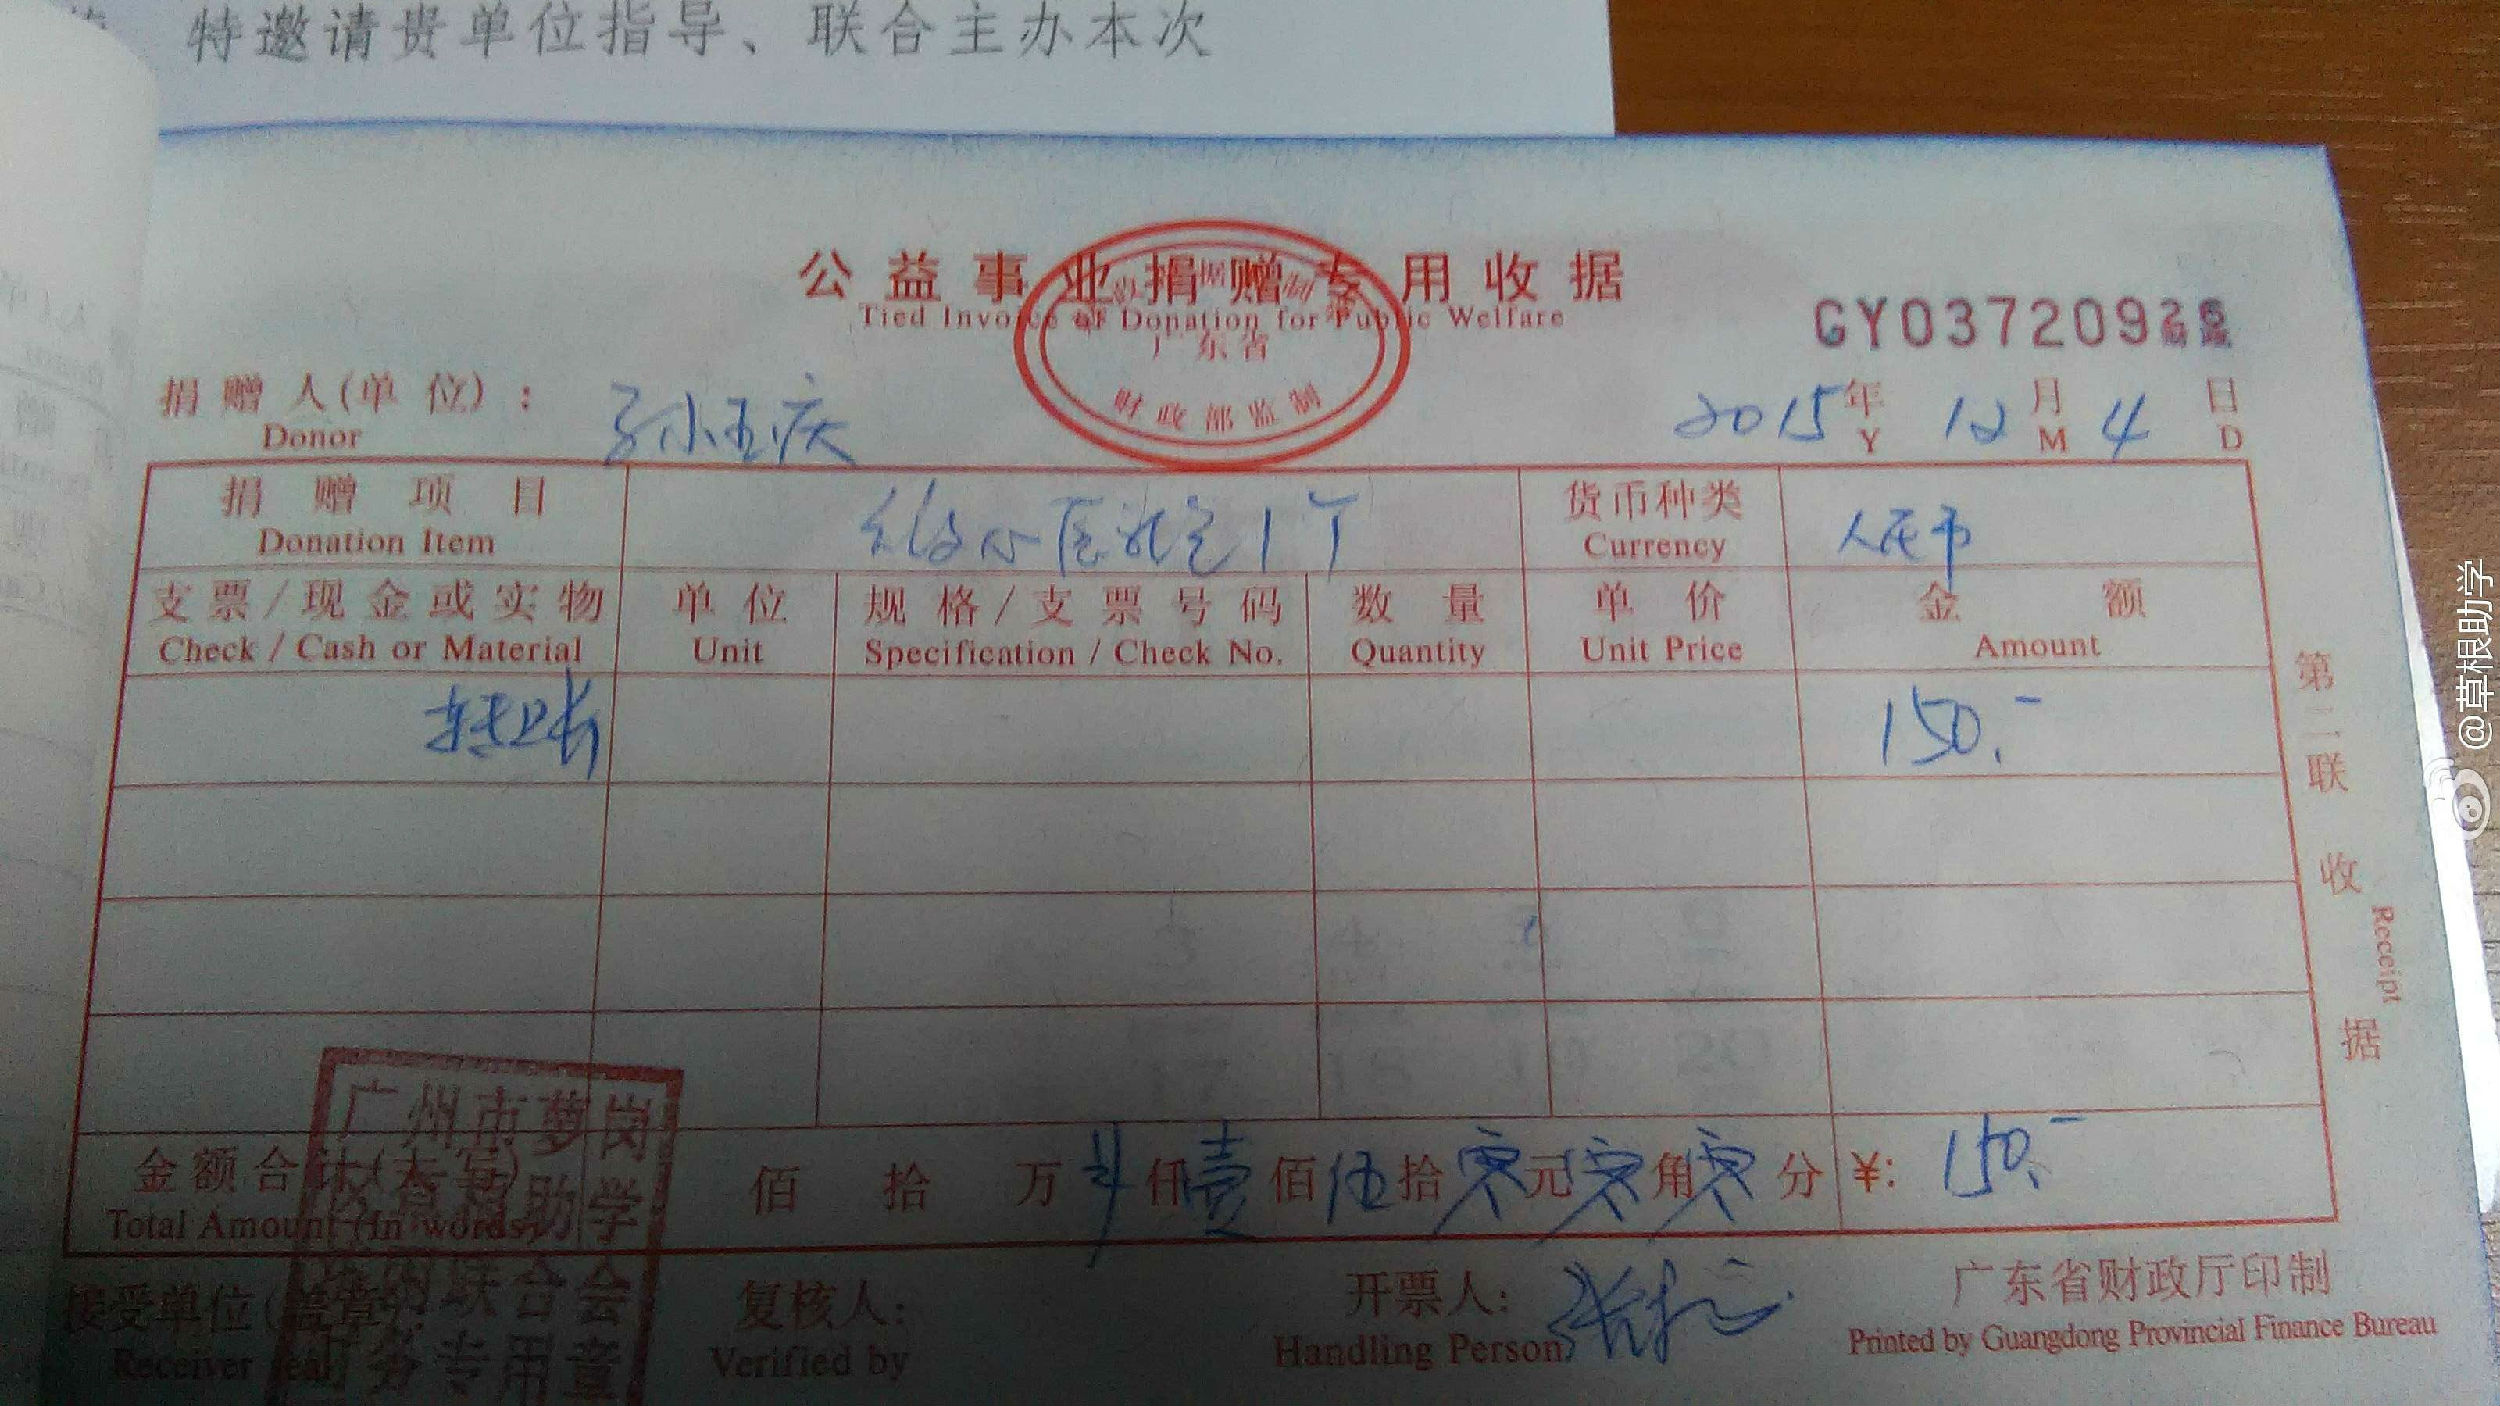 特邀请贵单位指导、联合主办本次
公益事业捐赠专用收据
Tied Invoice of Donation for Public Welfare
广东省
财政部监制
GY037209
捐赠人(单位)：
Donor
2015年 12月 4日
Y M D
捐赠项目
Donation Item
医 包1个
货币种类
Currency
人民币
支票/现金或实物 单位 规格/支票号码 数量 单价 金额
Check / Cash or Material Unit Specification / Check No. Quantity Unit Price Amount
转账 150.-
第二联 收据
Receipt
金额合计(大写) 佰 拾 万 仟壹佰伍拾零元零角零分 ¥: 150.-
Total Amount (In words)
接受单位(盖章):
Receiver Seal
复核人:
Verified by
开票人:
Handling Person
广东省财政厅印制
Printed by Guangdong Provincial Finance Bureau
广州市萝岗
区草根助学
联合会
财务专用章
@草根助学